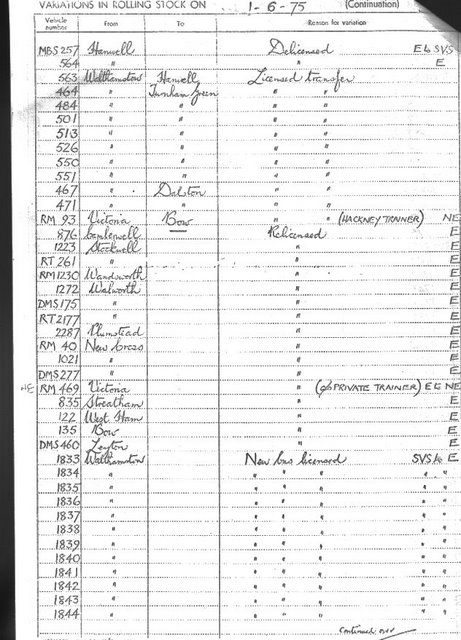 VARIATIONS IN ROLLING STOCK ON 1-6-75 (Continuation)
Vehicle number From To Reason for variation
MBS 257 Hanwell Delicensed E to SVS
564 " " E
563 Walthamstow Hanwell Licensed transfer
464 " Turnham Green " "
484 " " " "
501 " " " "
513 " " " "
526 " " " "
550 " " " "
551 " " " "
467 " Dalston " "
471 " " " "
RM 93 Victoria Bow " " (HACKNEY TRAINER) NE
876 Camberwell Relicensed E
1223 Stockwell " E
RT 261 " " E
RM 1230 Wandsworth " E
1272 Walworth " E
DMS 175 " " E
RT 2177 " " E
2287 Plumstead " E
RM 40 New Cross " E
1021 " " E
DMS 277 " " E
NE RM 469 Victoria " (c/o PRIVATE TRAINER) E to NE
835 Streatham " E
122 West Ham " E
135 Bow " E
DMS 460 Leyton " E
1833 Walthamstow New bus licensed SVS to E
1834 " " " " " "
1835 " " " " " "
1836 " " " " " "
1837 " " " " " "
1838 " " " " " "
1839 " " " " " "
1840 " " " " " "
1841 " " " " " "
1842 " " " " " "
1843 " " " " " "
1844 " " " " " "
Continued over